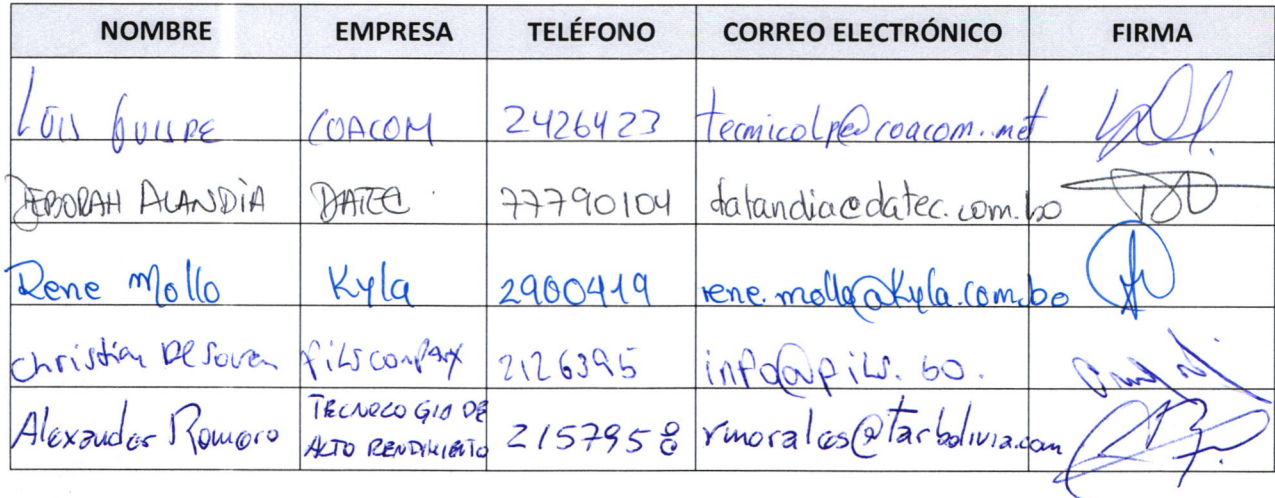 NOMBRE EMPRESA TELÉFONO CORREO ELECTRÓNICO FIRMA
Luis Quispe COACOM 2426423 tecnicolp@coacom.net
DEBORAH ALANDIA DATEC 77790104 dalandia@datec.com.bo
Rene Mollo Kyla 2900419 rene.mollo@kyla.com.bo
Christian 2126395 info@pils.bo.
TECNOLOGIA DE
Alexander Romero ALTO RENDIMIENTO 2157958 rmorales@tarbolivia.com